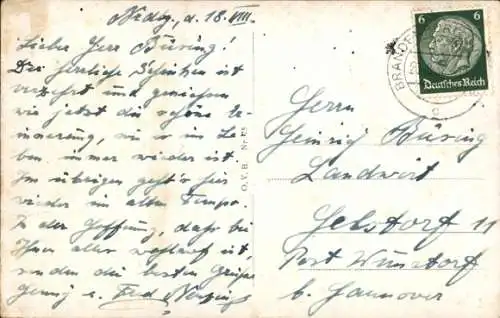 d. 18. VIII.
Lieber Herr Büsing!
Der herrliche Schinken ist
verzehrt und geniessen
wir jetzt die schöne Er-
innerung, wie es im Le-
ben immer wieder ist.
Im übrigen geht's hier
wieder im alten Tempo.
In der Hoffnung, dass bei
Ihnen alles wohlauf ist,
senden die besten Grüsse
u. Fred
O.V.B.
6 6
Deutsches Reich
BRANDEN
e
Herrn
Heinrich Büsing
Landwirt
Helstorf 11
Post Wunstorf
b. Hannover